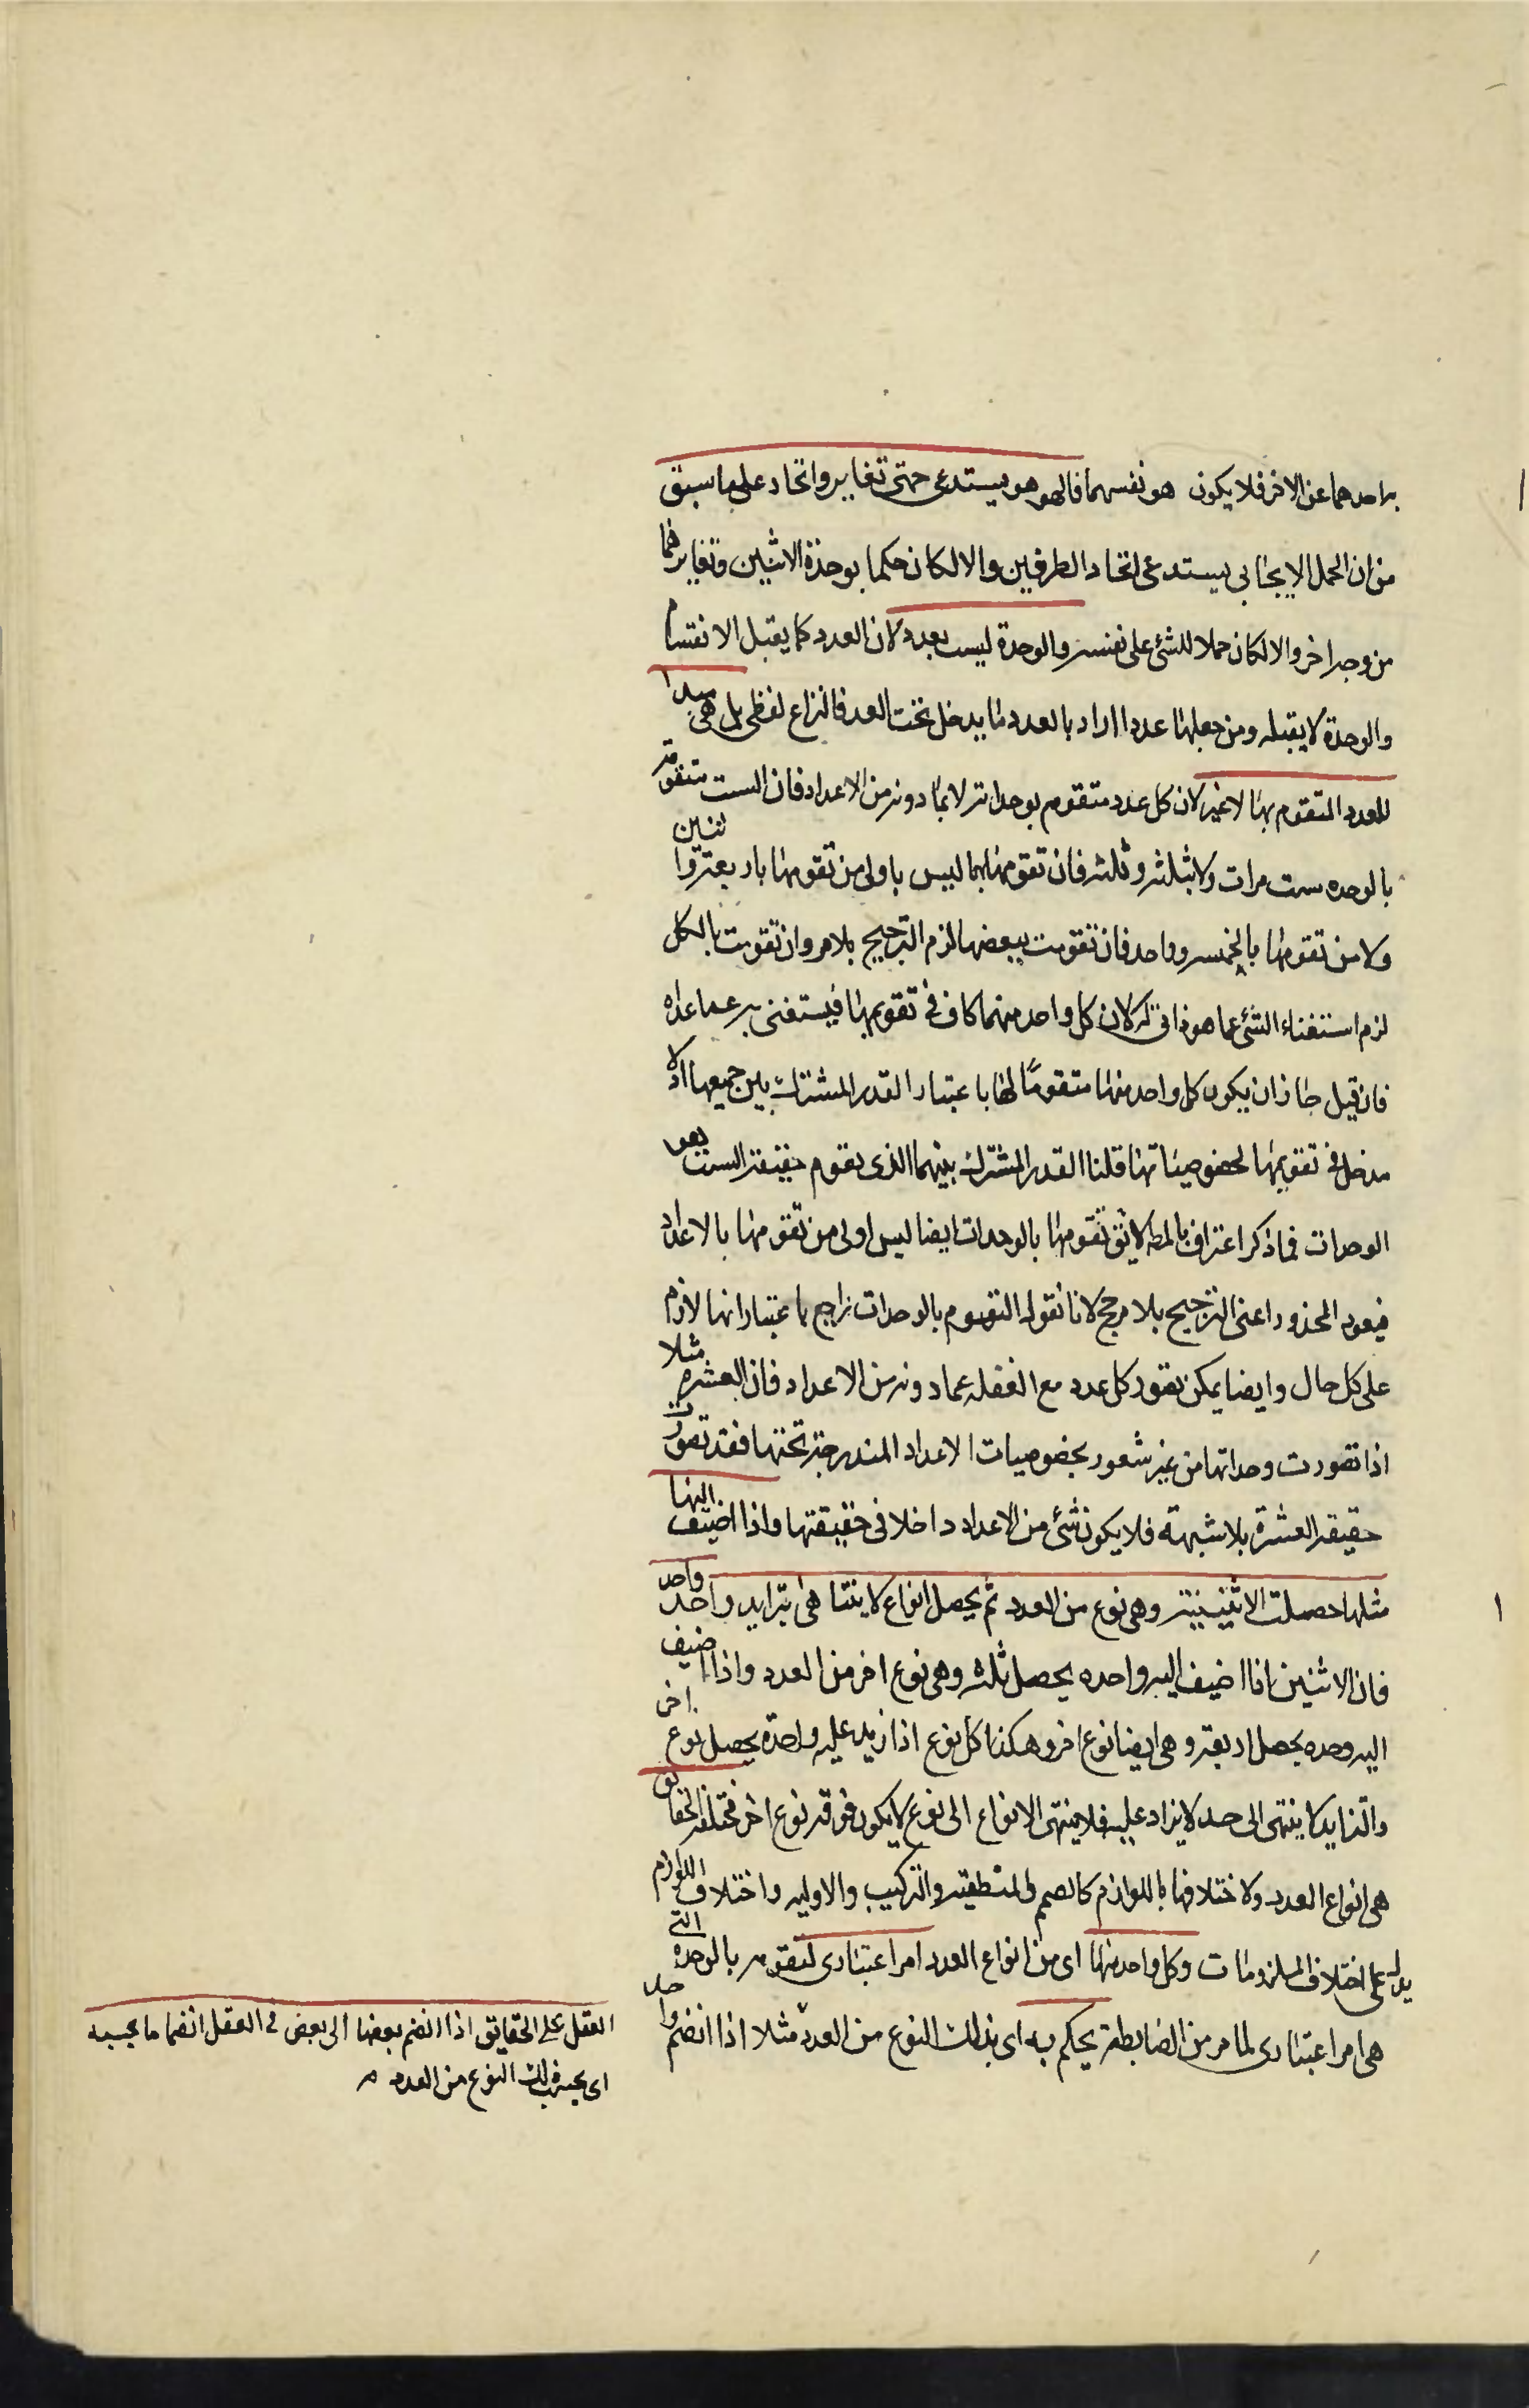 باحدهما عن الاخر فلا يكون هو نفسهما فالهو هو يستدعى جهتى تغاير واتحاد على ما سبق
من ان الحمل الايجابى يستدعى اتحاد الطرفين والا لكان حكما بوحدة الاثنين وتغايرهما
من وجه اخر والا لكان حملا للشئ على نفسه والوحدة ليست بعدد لان العدد كما يقبل الانقسام
والوحدة لا يقبله ومن جعلها عددا اراد بالعدد ما يدخل تحت العد فالنزاع لفظى بل هى مبدا
للعدد المتقوم بها لا غير لان كل عدد متقوم بوحداته لا بما دونه من الاعداد فان الست متقومة
بالوحده ست مرات ولا بثلثه وثلثه فان تقومها بهما ليس باولى من تقومها باربعة واثنين
ولا من تقومها بالخمسه وواحد فان تقومت ببعضها لزم الترجيح بلا مر وان تقومت بالكل
لزم استغناء الشئ عما هو ذاتى له لان كل واحد منهما كاف فى تقويمها فيستغنى به عما عداه
فان قيل جاز ان يكون كل واحد منها متقوما لها باعتبار القدر المشترك بين جميعها اذ لا
مدخل فى تقويمها لخصوصياتها قلنا القدر المشترك بينهما الذى يقوم حقيقة الستة هو
الوحدات فما ذكر اعتراف بالمط لا يق تقومها بالوحدات ايضا ليس اولى من تقومها بالاعداد
فيعود المحذور اعنى الترجيح بلا مرجح لانا نقول التقوم بالوحدات راجح باعتبار انها لازم
على كل حال وايضا يمكن تصور كل عدد مع الغفله عما دونه من الاعداد فان العشره مثلا
اذا تصورت وحداتها من غير شعور بخصوصيات الاعداد المندرجة تحتها فقد تصورت
حقيقه العشرة بلا شبهة فلا يكون شئ من الاعداد داخلا فى حقيقتها واذا اضيف اليها
مثلها حصلت الاثنينية وهى نوع من العدد ثم يحصل انواع لا يتناهى بتزايد واحد واحد
فان الاثنين اذا اضيف اليه واحده يحصل ثلثه وهى نوع اخر من العدد واذا اضيف
اليه وحده يحصل اربعة وهى ايضا نوع اخر وهكذا كل نوع اذا زيد عليه واحدة يحصل نوع اخر
والتزايد لا ينتهى الى حد لا يزاد عليه فلا ينتهى الانواع الى نوع لا يكون فوقه نوع اخر مختلفة الحقايق
هى انواع العدد ولاختلافها باللوازم كالصمم والمنطقيه والتركيب والاوليه واختلاف اللوازم
يدل على اختلاف الملزومات وكل واحد منها اى من انواع العدد امر اعتبارى لتقومه بالوحدة التى
هى امر اعتبارى لما مر من الضابطة يحكم به اى بذلك النوع من العدد مثلا اذا انضم واحد
العقل على الحقايق اذا انضم بعضها الى بعض فى العقل انضماما بحسبه
اى بحسب ذلك النوع من العدد م